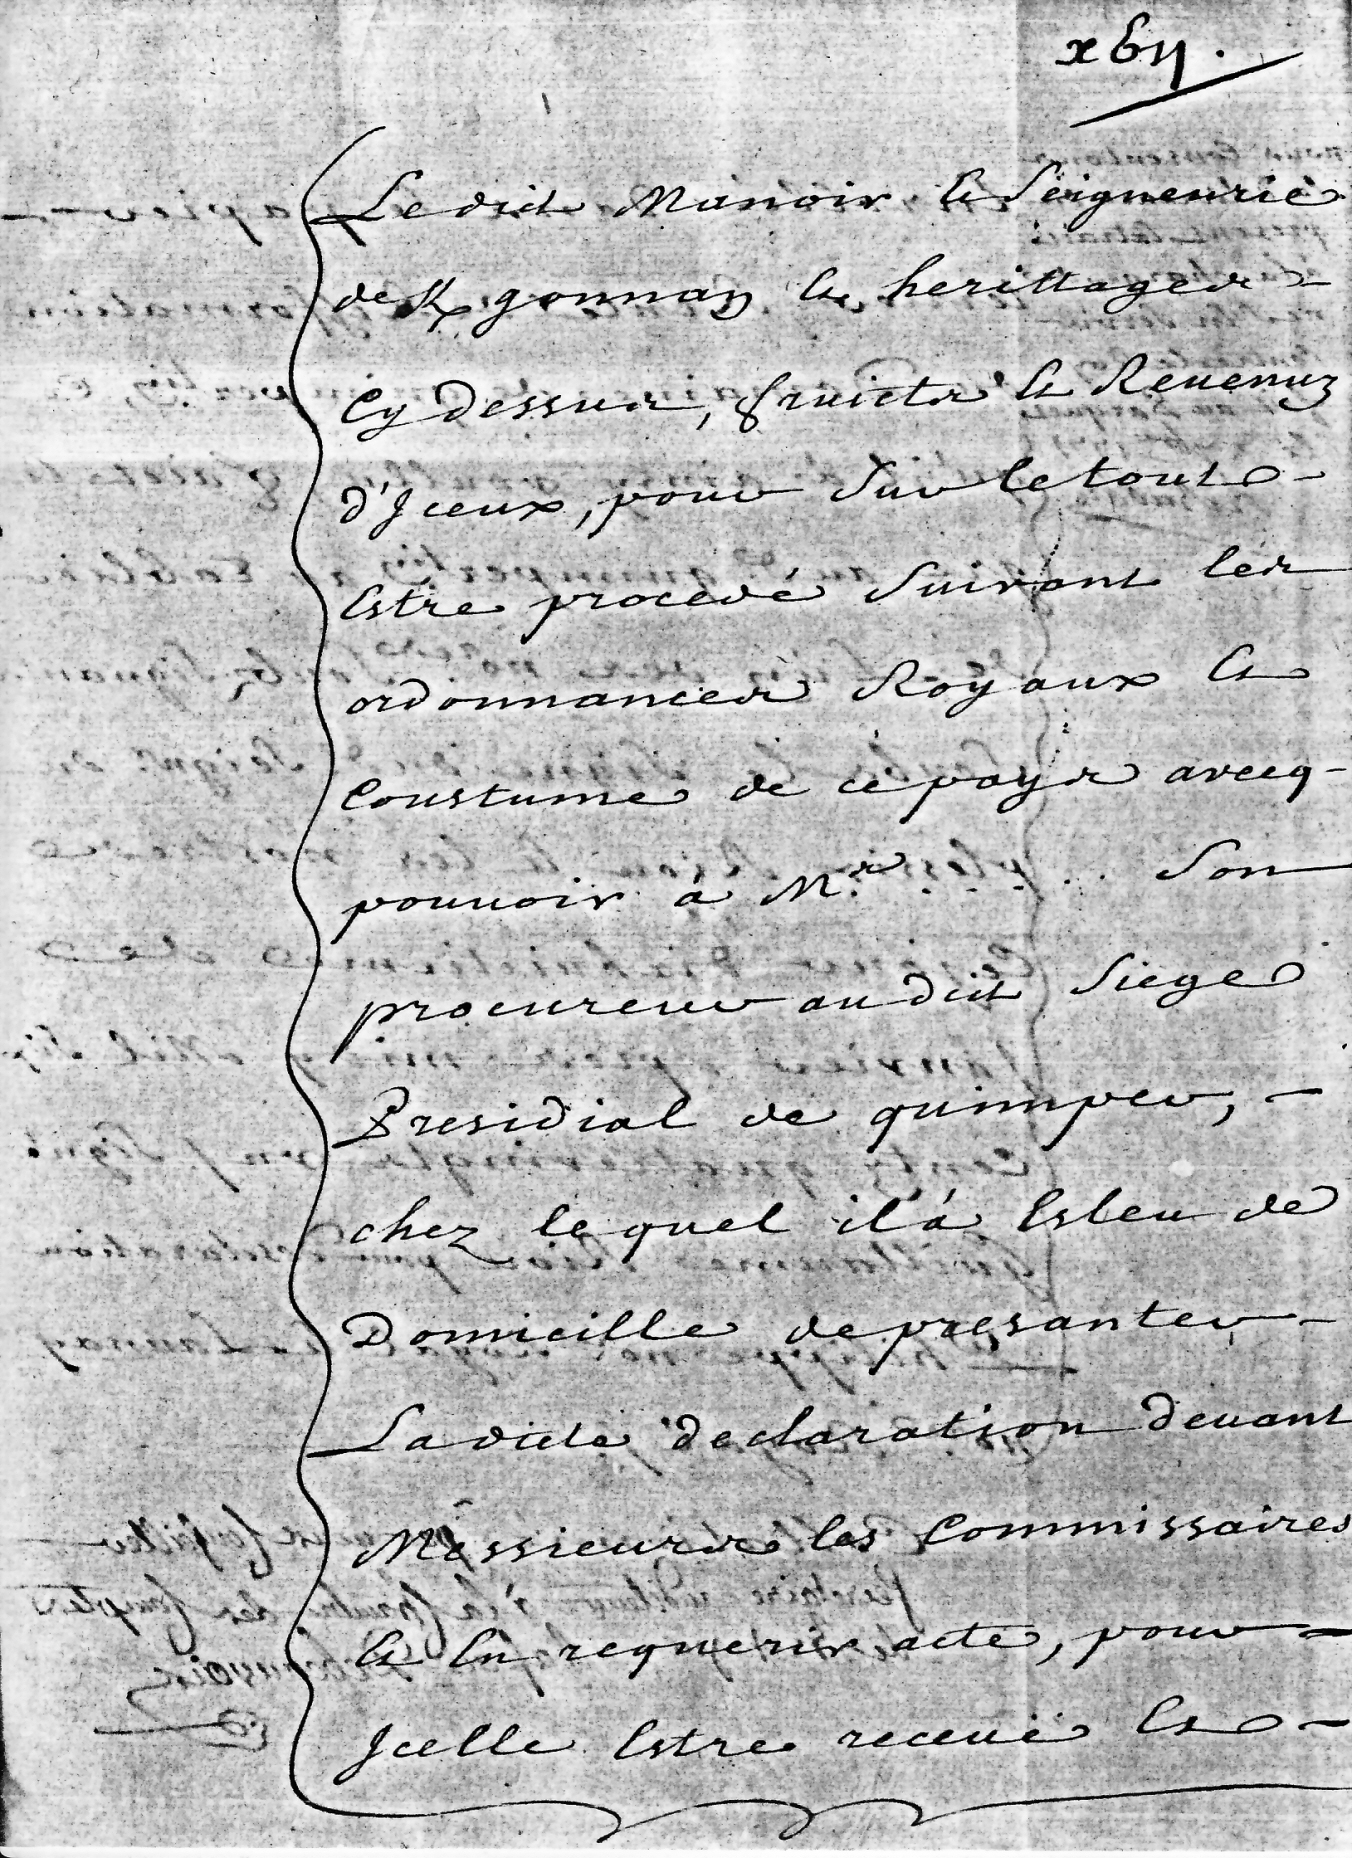 xbij.
Ledict Manoir & Seigneurie
de K/gonnan & herittages
Cy dessus, fruicts & Revenuz
d'Jceux, pour sur le tout
Estre procedé suivant les
ordonnances Royaux &
Coustume de ce pays avecq
pouuoir à Mr. .... son
procureur audict siege
Presidial de quimper,
chez lequel il à Esleu de
Domicille de presanter
Ladicte declaration deuant
Messieurs les Commissaires
& En requerir acte, pour
Jcelle Estre receuë Es